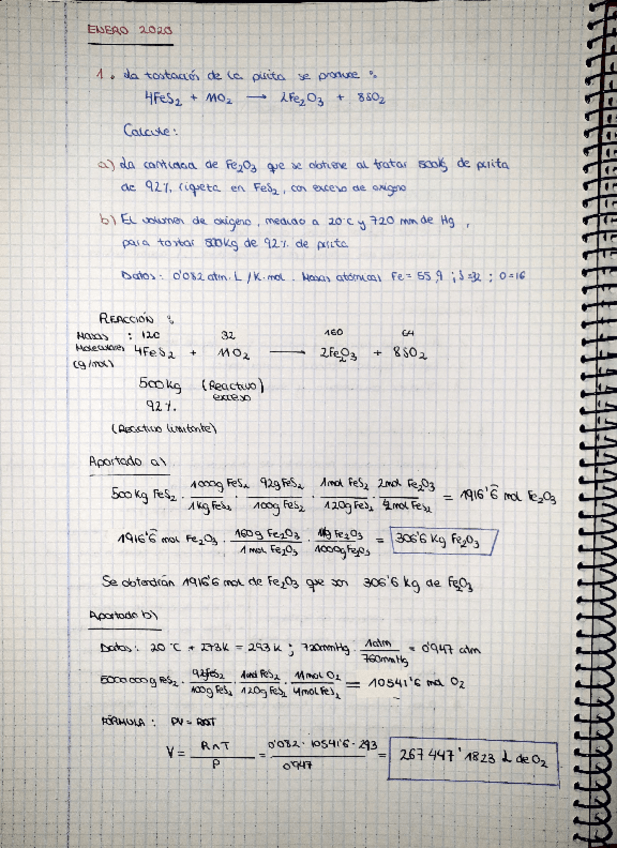 ENERO 2020
1. La tostación de la pirita se produce:
4FeS₂ + 11O₂ → 2Fe₂O₃ + 8SO₂
Calcule:
a) La cantidad de Fe₂O₃ que se obtiene al tratar 500kg de pirita
de 92% riqueza en FeS₂, con exceso de oxígeno
b) El volumen de oxígeno, medido a 20°C y 720 mm de Hg,
para tostar 500kg de 92% de pirita
Datos: 0'082 atm·L/K·mol. Masas atómicas Fe = 55,9; S=32; O=16
REACCIÓN:
Masas : 120 32 160 64
Moleculares 4FeS₂ + 11O₂ → 2Fe₂O₃ + 8SO₂
(g/mol)
500kg (Reactivo)
exceso
92%
(Reactivo limitante)
Apartado a)
500 kg FeS₂ · 1000g FeS₂/1kg FeS₂ · 92g FeS₂/100g FeS₂ · 1mol FeS₂/120g FeS₂ · 2mol Fe₂O₃/4mol FeS₂ = 1916'6̑ mol Fe₂O₃
1916'6̑ mol Fe₂O₃ · 160g Fe₂O₃/1 mol Fe₂O₃ · 1kg Fe₂O₃/1000g Fe₂O₃ = 306'6 Kg Fe₂O₃
Se obtendrán 1916'6 mol de Fe₂O₃ que son 306'6 kg de Fe₂O₃
Apartado b)
Datos: 20°C + 273K = 293K; 720mmHg · 1atm/760mmHg = 0'947 atm
5000000g FeS₂ · 92FeS₂/100g FeS₂ · 1mol FeS₂/120g FeS₂ · 11mol O₂/4mol FeS₂ = 10541'6 mol O₂
FÓRMULA: PV = RnT
V = RnT/P = 0'082 · 10541'6 · 293/0'947 = 267447'1823 L de O₂